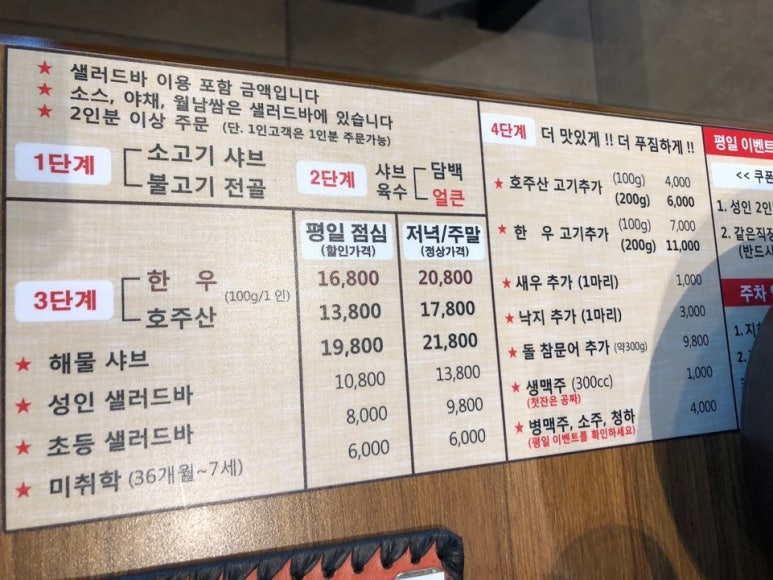 ★ 샐러드바 이용 포함 금액입니다
★ 소스, 야채, 월남쌈은 샐러드바에 있습니다
★ 2인분 이상 주문 (단. 1인고객은 1인분 주문가능)
1단계 소고기 샤브
불고기 전골
2단계 샤브 육수 담백
얼큰
평일 점심 (할인가격) 저녁/주말 (정상가격)
3단계 한 우 (100g/1인) 16,800 20,800
호주산 13,800 17,800
★ 해물 샤브 19,800 21,800
★ 성인 샐러드바 10,800 13,800
★ 초등 샐러드바 8,000 9,800
★ 미취학 (36개월~7세) 6,000 6,000
4단계 더 맛있게 !! 더 푸짐하게 !!
★ 호주산 고기추가 (100g) 4,000
(200g) 6,000
★ 한 우 고기추가 (100g) 7,000
(200g) 11,000
★ 새우 추가 (1마리) 1,000
★ 낙지 추가 (1마리) 3,000
★ 돌 참문어 추가 (약300g) 9,800
★ 생맥주 (300cc) 1,000
(첫잔은 공짜)
★ 병맥주, 소주, 청하 4,000
(평일 이벤트를 확인하세요)
평일 이벤트
<< 쿠폰
1. 성인 2인
2. 같은직장
(반드시
주차
1.
2.